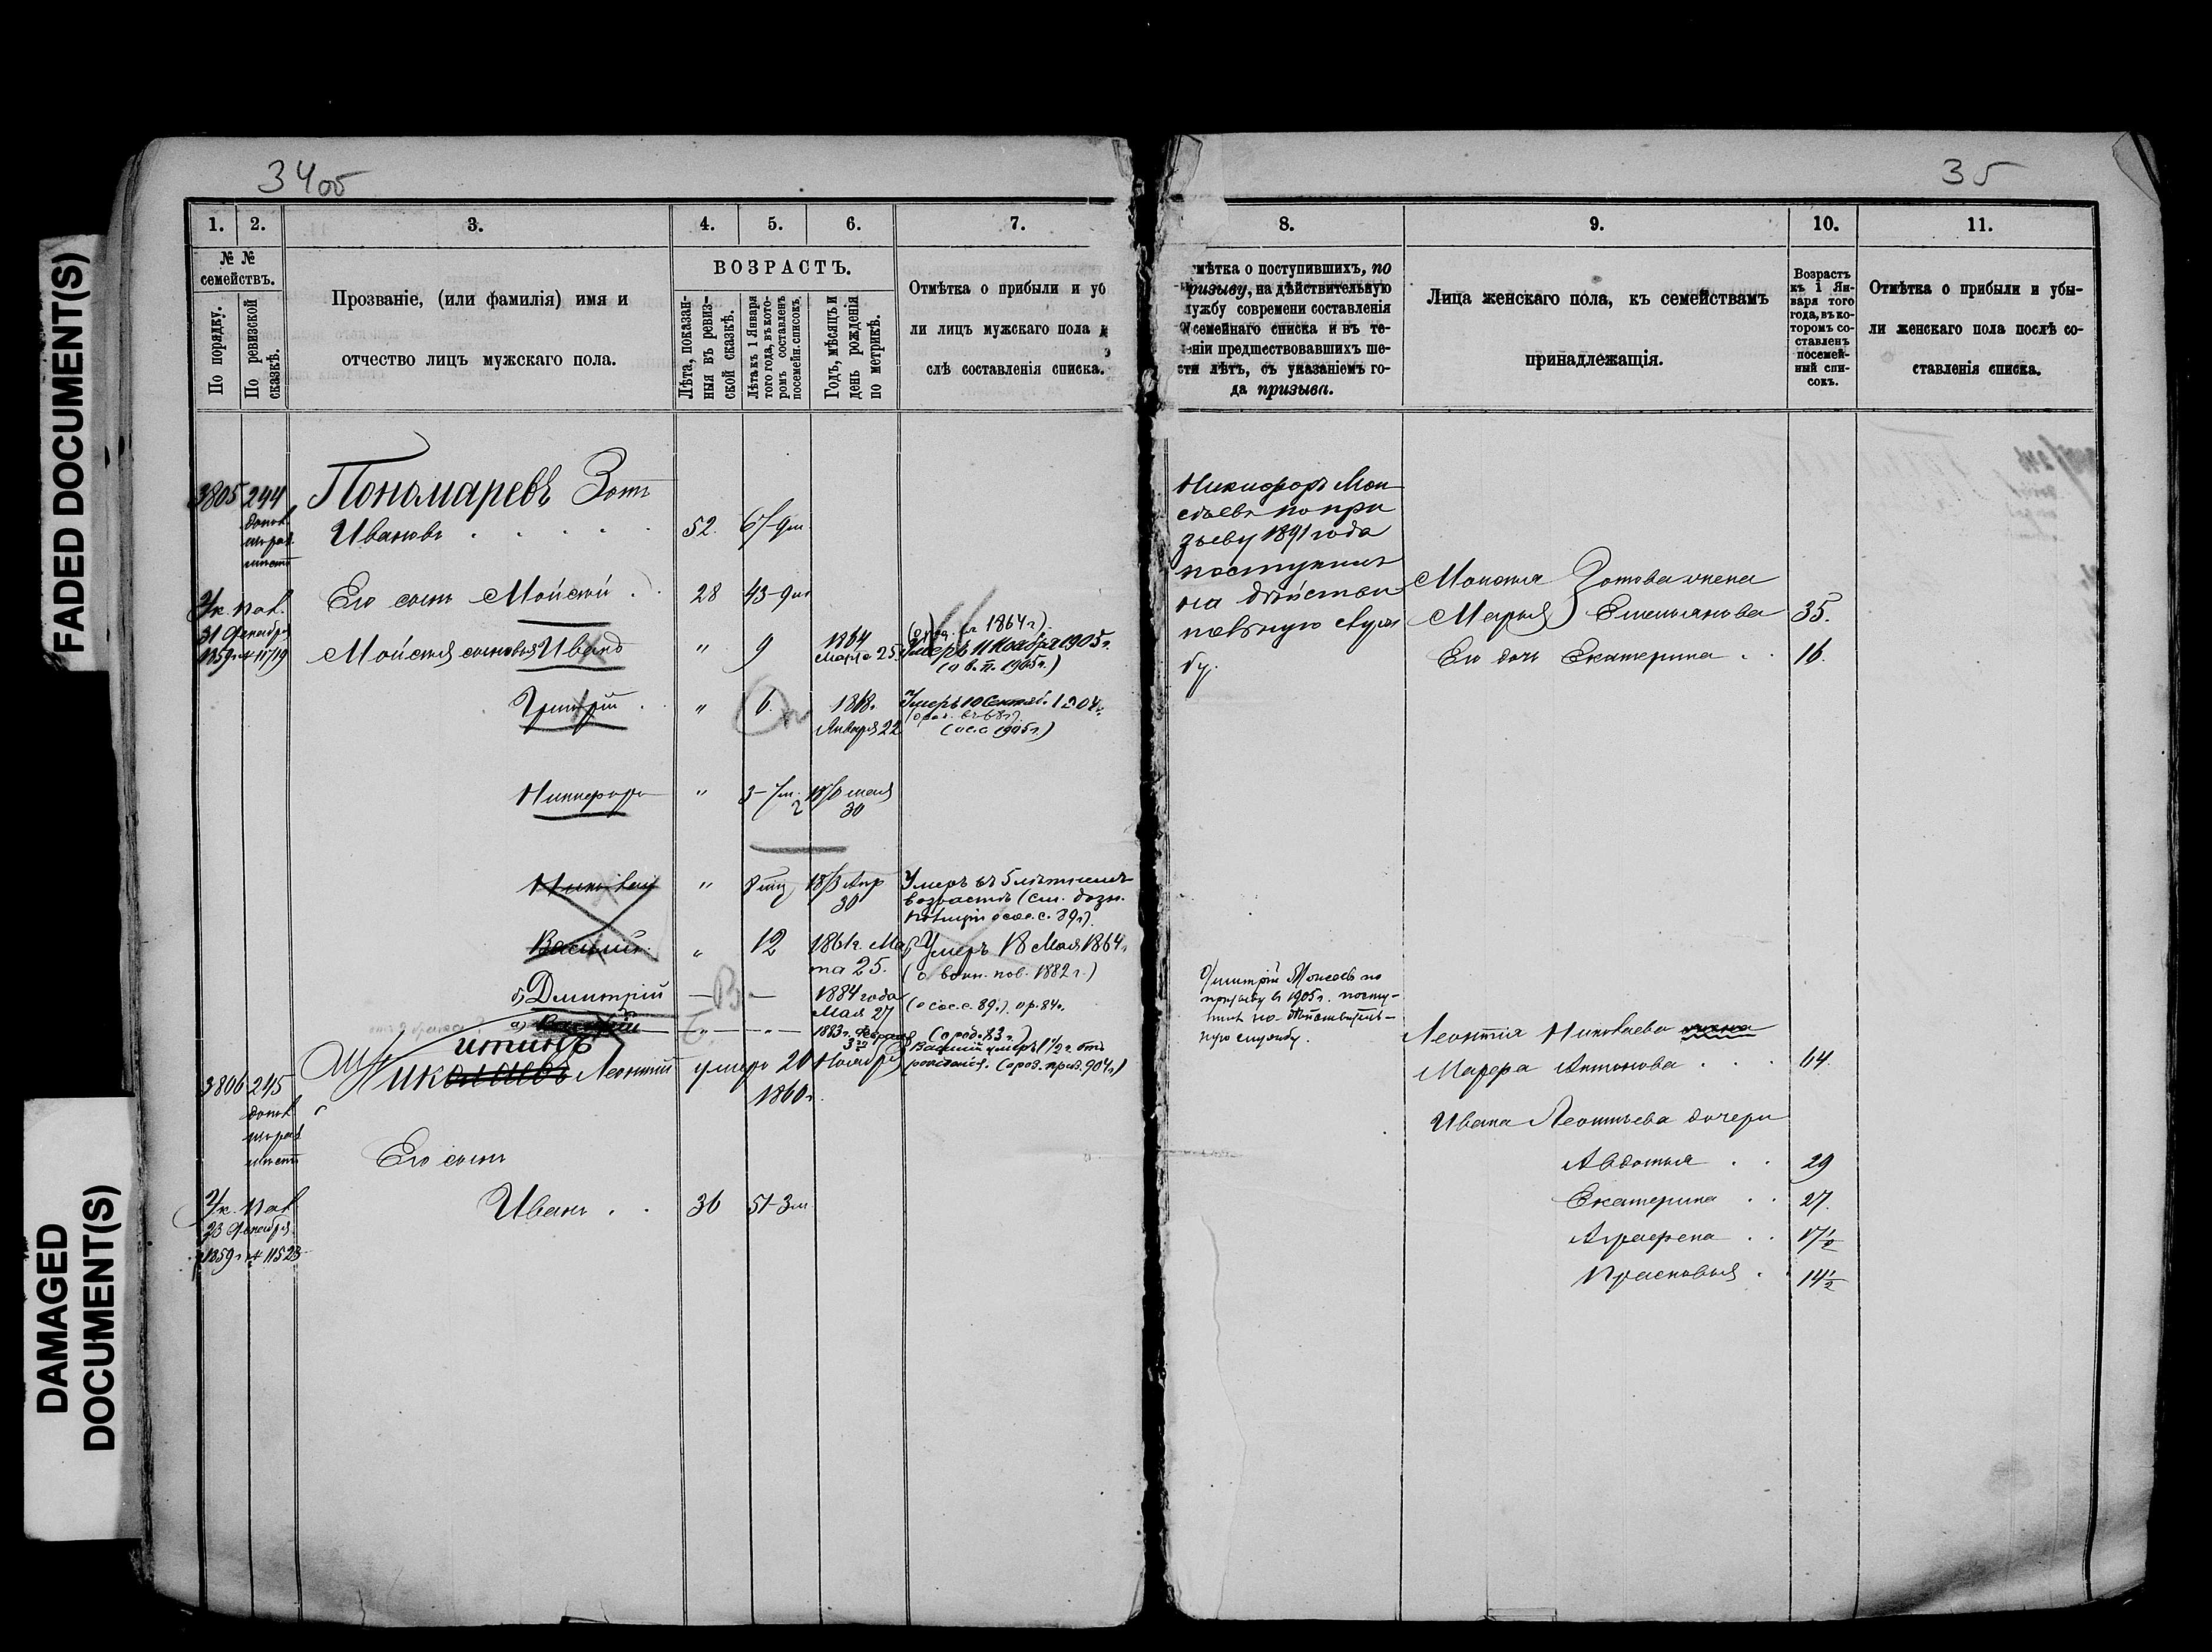 FADED DOCUMENT(S)
DAMAGED
DOCUMENT(S)
34 об
1. 2. 3. 4. 5. 6. 7.
№ №
семействъ.
По порядку.
По ревизской
сказкѣ.
Прозваніе, (или фамилія) имя и
отчество лицъ мужскаго пола.
ВОЗРАСТЪ.
Лѣта, показан-
ныя въ ревиз-
ской сказкѣ.
Лѣта къ 1 Января
того года, въ кото-
ромъ составленъ
посемейн. списокъ.
Годъ, мѣсяцъ и
день рожденія
по метрикѣ.
Отмѣтка о прибыли и уб
ли лицъ мужскаго пола
слѣ составленія списка.
3805 244 Пономаревъ Зотъ
Ивановъ 52. 67-9м.
Ук. Пал.
31 Декабря
1859 г. № 11719
Его сынъ Мойсей 28 43-9м
Мойсея сыновья Иванъ " 9 1864 Марта 25.
Умеръ 11 Ноября 1905 г.
(о в. п. 1905 г.)
Григорій " 6. 1868. Января 22
Умеръ 10 Сентяб. 1904 г.
(ос. с 1905 г.)
Никифоръ " 3-7м. мая 30
Николай " 8 мц Апр 30
Умеръ въ 5 лѣтнемъ
возрастѣ (см. дозн.
полиціи о сос. с. 89 г.)
Василій " 12 1861 г. Марта 25.
Умеръ 18 Мая 1864 г.
(о воин. пов. 1882 г.)
б) Дмитрій 1884 года Мая 27
(о сос. с. 89 г.) ор. 84 г.
а) Василій 1883 г. Февраля 3
(о род. 83 г.)
Василій умеръ 1 1/2 г. отъ
рожденія. (ороз. приз. 904 г.)
3806 245 Николаевъ Леонтій умеръ 20 Ноября
итинъ
1860 г.
Ук. Пал
23 Декабря
1859 г. № 11523
Его сынъ
Иванъ 36 51-3м.
35
8. 9. 10. 11.
мѣтка о поступившихъ, по
призыву, на дѣйствительную
лужбу современи составленія
семейнаго списка и въ те-
еніи предшествовавшихъ ше-
сти лѣтъ, съ указаніемъ го-
да призыва.
Лица женскаго пола, къ семействамъ
принадлежащія.
Возрастъ
къ 1 Ян-
варя того
года, въ ко-
торомъ со-
ставленъ
посемей-
ный спи-
сокъ.
Отмѣтка о прибыли и убы-
ли женскаго пола послѣ со-
ставленія списка.
Никифоръ Мои
сѣевъ по при
зыву 1891 года
поступилъ
на дѣйстви
тельную служ
бу.
Моисея Зотова жена
Марья Емельянова 35.
Его дочь Екатерина 16.
Дмитрій Моисеевъ по
призыву въ 1905 г. посту-
пилъ на дѣйствитель-
ную службу.
Леонтія Николаева жена
Марфа Антонова 64.
Ивана Леонтьева дочери
Авдотья 29
Екатерина 27.
Аграфена 17 1/2
Прасковья 14 1/2